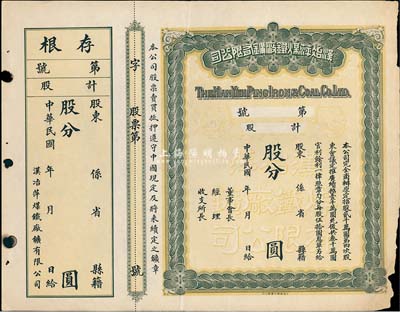 司公限有礦廠鐵煤萍冶漢
THE HAN YEH PING IRON & COAL CO. LTD.
第 號
計 股
股東 係 省 縣籍
股分 圓
中華民國 年 月 日給
董事會長
經理
收支所長
本公司股票賣買抵押遵守中國規定及將來續定之鑛章
字 股票第 號
根存
第 號
計 股
股東 係 省 縣籍
股分 圓
中華民國 年 月 日給
漢冶萍煤鐵廠鑛有限公司